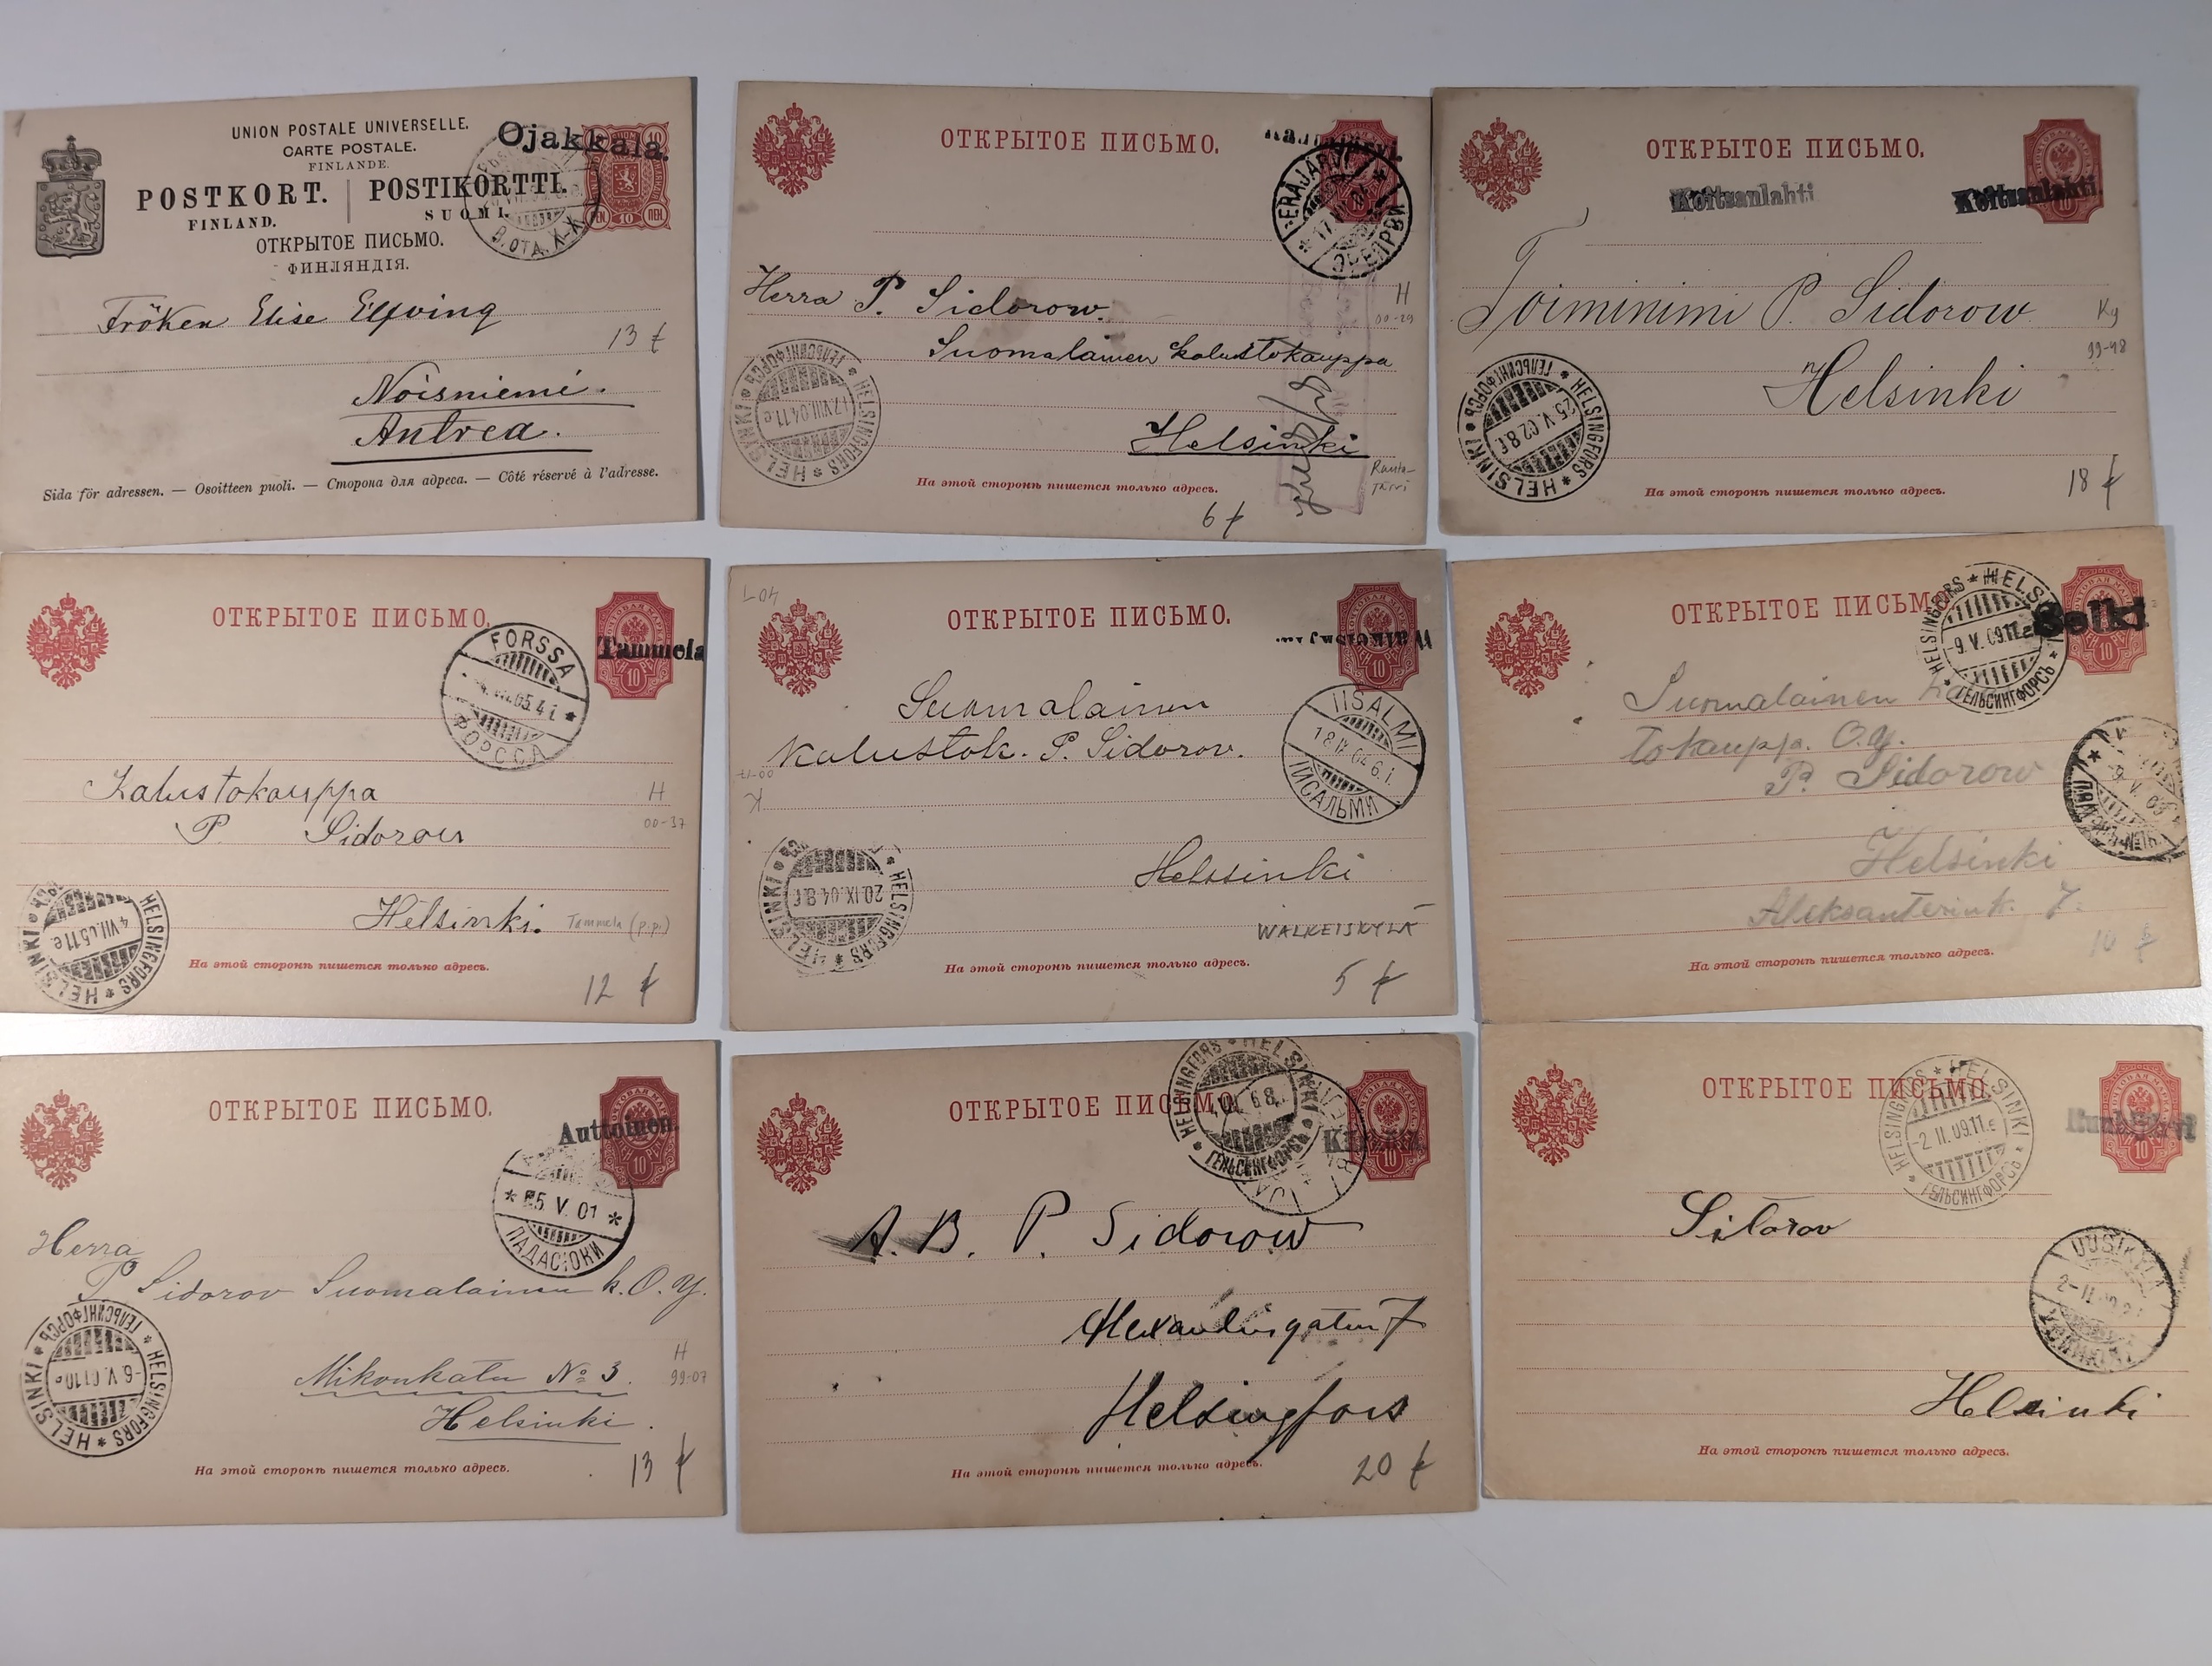 1
UNION POSTALE UNIVERSELLE.
CARTE POSTALE.
FINLANDE.
POSTKORT. | POSTIKORTTI.
FINLAND. SUOMI.
ОТКРЫТОЕ ПИСЬМО.
ФИНЛЯНДІЯ.
Ojakkala.
10
Fröken Elise Elfving
13 €
Noisniemi.
Antrea.
Sida för adressen. — Osoitteen puoli. — Сторона для адреса. — Côté réservé à l'adresse.
ОТКРЫТОЕ ПИСЬМО.
ERÄJÄRVI
Herra P. Sidorow.
H
00-29
Suomalainen Kalustokauppa
HELSINKI * HELSINGFORS * ГЕЛЬСИНГФОРСЪ
17.VIII.04.11 e
Helsinki
Ranta-
järvi
На этой сторонѣ пишется только адресъ.
6 €
ОТКРЫТОЕ ПИСЬМО.
Koitsanlahti
Koitsanlahti
10
Toiminimi P. Sidorow
Ky
99-48
Helsinki
HELSINKI * HELSINGFORS * ГЕЛЬСИНГФОРСЪ
25.V.02.8 f
18 €
На этой сторонѣ пишется только адресъ.
ОТКРЫТОЕ ПИСЬМО.
Tammela
10
FORSSA
ФОРССА
Kalustokauppa
H
00-37
P. Sidorow
Helsinki.
Tammela (p.p.)
HELSINKI * HELSINGFORS
4.VII.05.11 e
На этой сторонѣ пишется только адресъ.
12 €
L04
ОТКРЫТОЕ ПИСЬМО.
10
Suomalainen
Kalustok. P. Sidorov.
IISALMI
18.IX.04 6.i
ІИСАЛЬМИ
K
00-17
Helsinki
HELSINKI * HELSINGFORS
20.IX.04 8 f
WALKEISKYLÄ
На этой сторонѣ пишется только адресъ.
5 €
ОТКРЫТОЕ ПИСЬМО.
HELSINGFORS * HELSINKI * ГЕЛЬСИНГФОРСЪ
-9.V.09.11 e
Selki
10
Suomalainen
tokaupp. O.Y.
P. Sidorow
Helsinki
Aleksanterink. 7.
10 €
На этой сторонѣ пишется только адресъ.
ОТКРЫТОЕ ПИСЬМО.
Auttoinen.
10
5 V. 01
ПАДАСІОКИ
Herra
P Sidorov Suomalainen k.O.Y.
H
99-07
Mikonkatu No 3.
Helsinki.
HELSINKI * HELSINGFORS * ГЕЛЬСИНГФОРСЪ
-6.V.01.10
На этой сторонѣ пишется только адресъ.
13 €
ОТКРЫТОЕ ПИСЬМО.
HELSINGFORS * HELSINKI * ГЕЛЬСИНГФОРСЪ
10
A. B. P. Sidorow
Alexandersgatan 7
Helsingfors
На этой сторонѣ пишется только адресъ.
20 €
ОТКРЫТОЕ ПИСЬМО.
HELSINGFORS * HELSINKI * ГЕЛЬСИНГФОРСЪ
-2.II.09.11 e
10
Sitarov
UUSIKYLÄ
Helsinki
На этой сторонѣ пишется только адресъ.